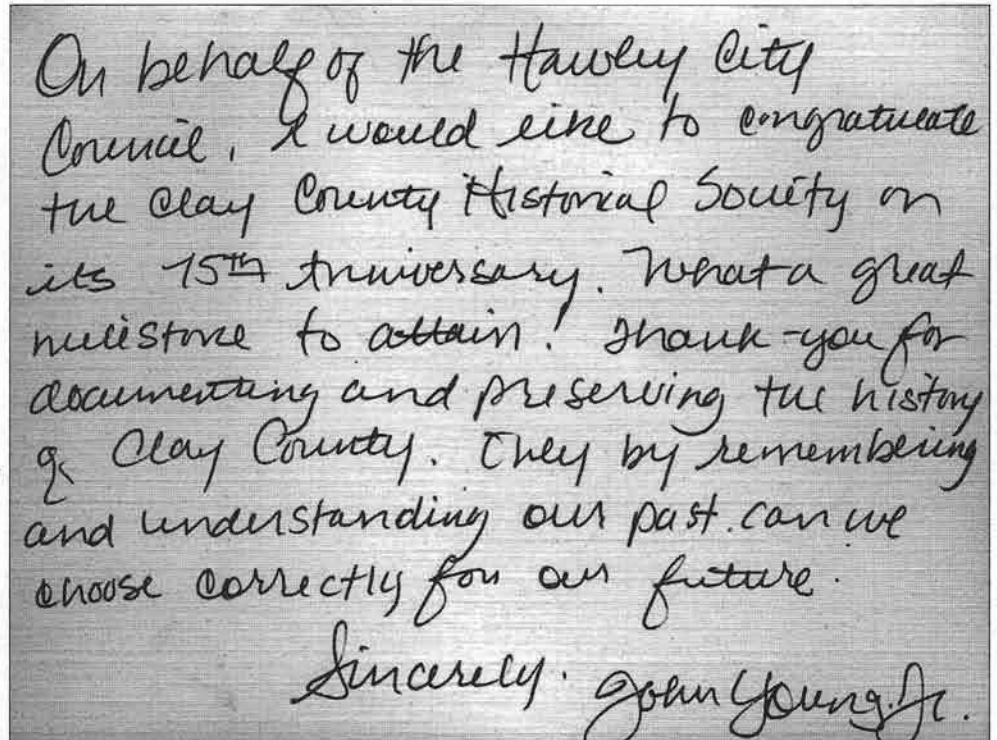 On behalf of the Hawley City
Council, I would like to congratulate
the Clay County Historical Society on
its 75th Anniversary. What a great
milestone to attain! Thank-you for
documenting and preserving the history
of Clay County. Only by remembering
and understanding our past can we
choose correctly for our future.
Sincerely. John Young, Jr.